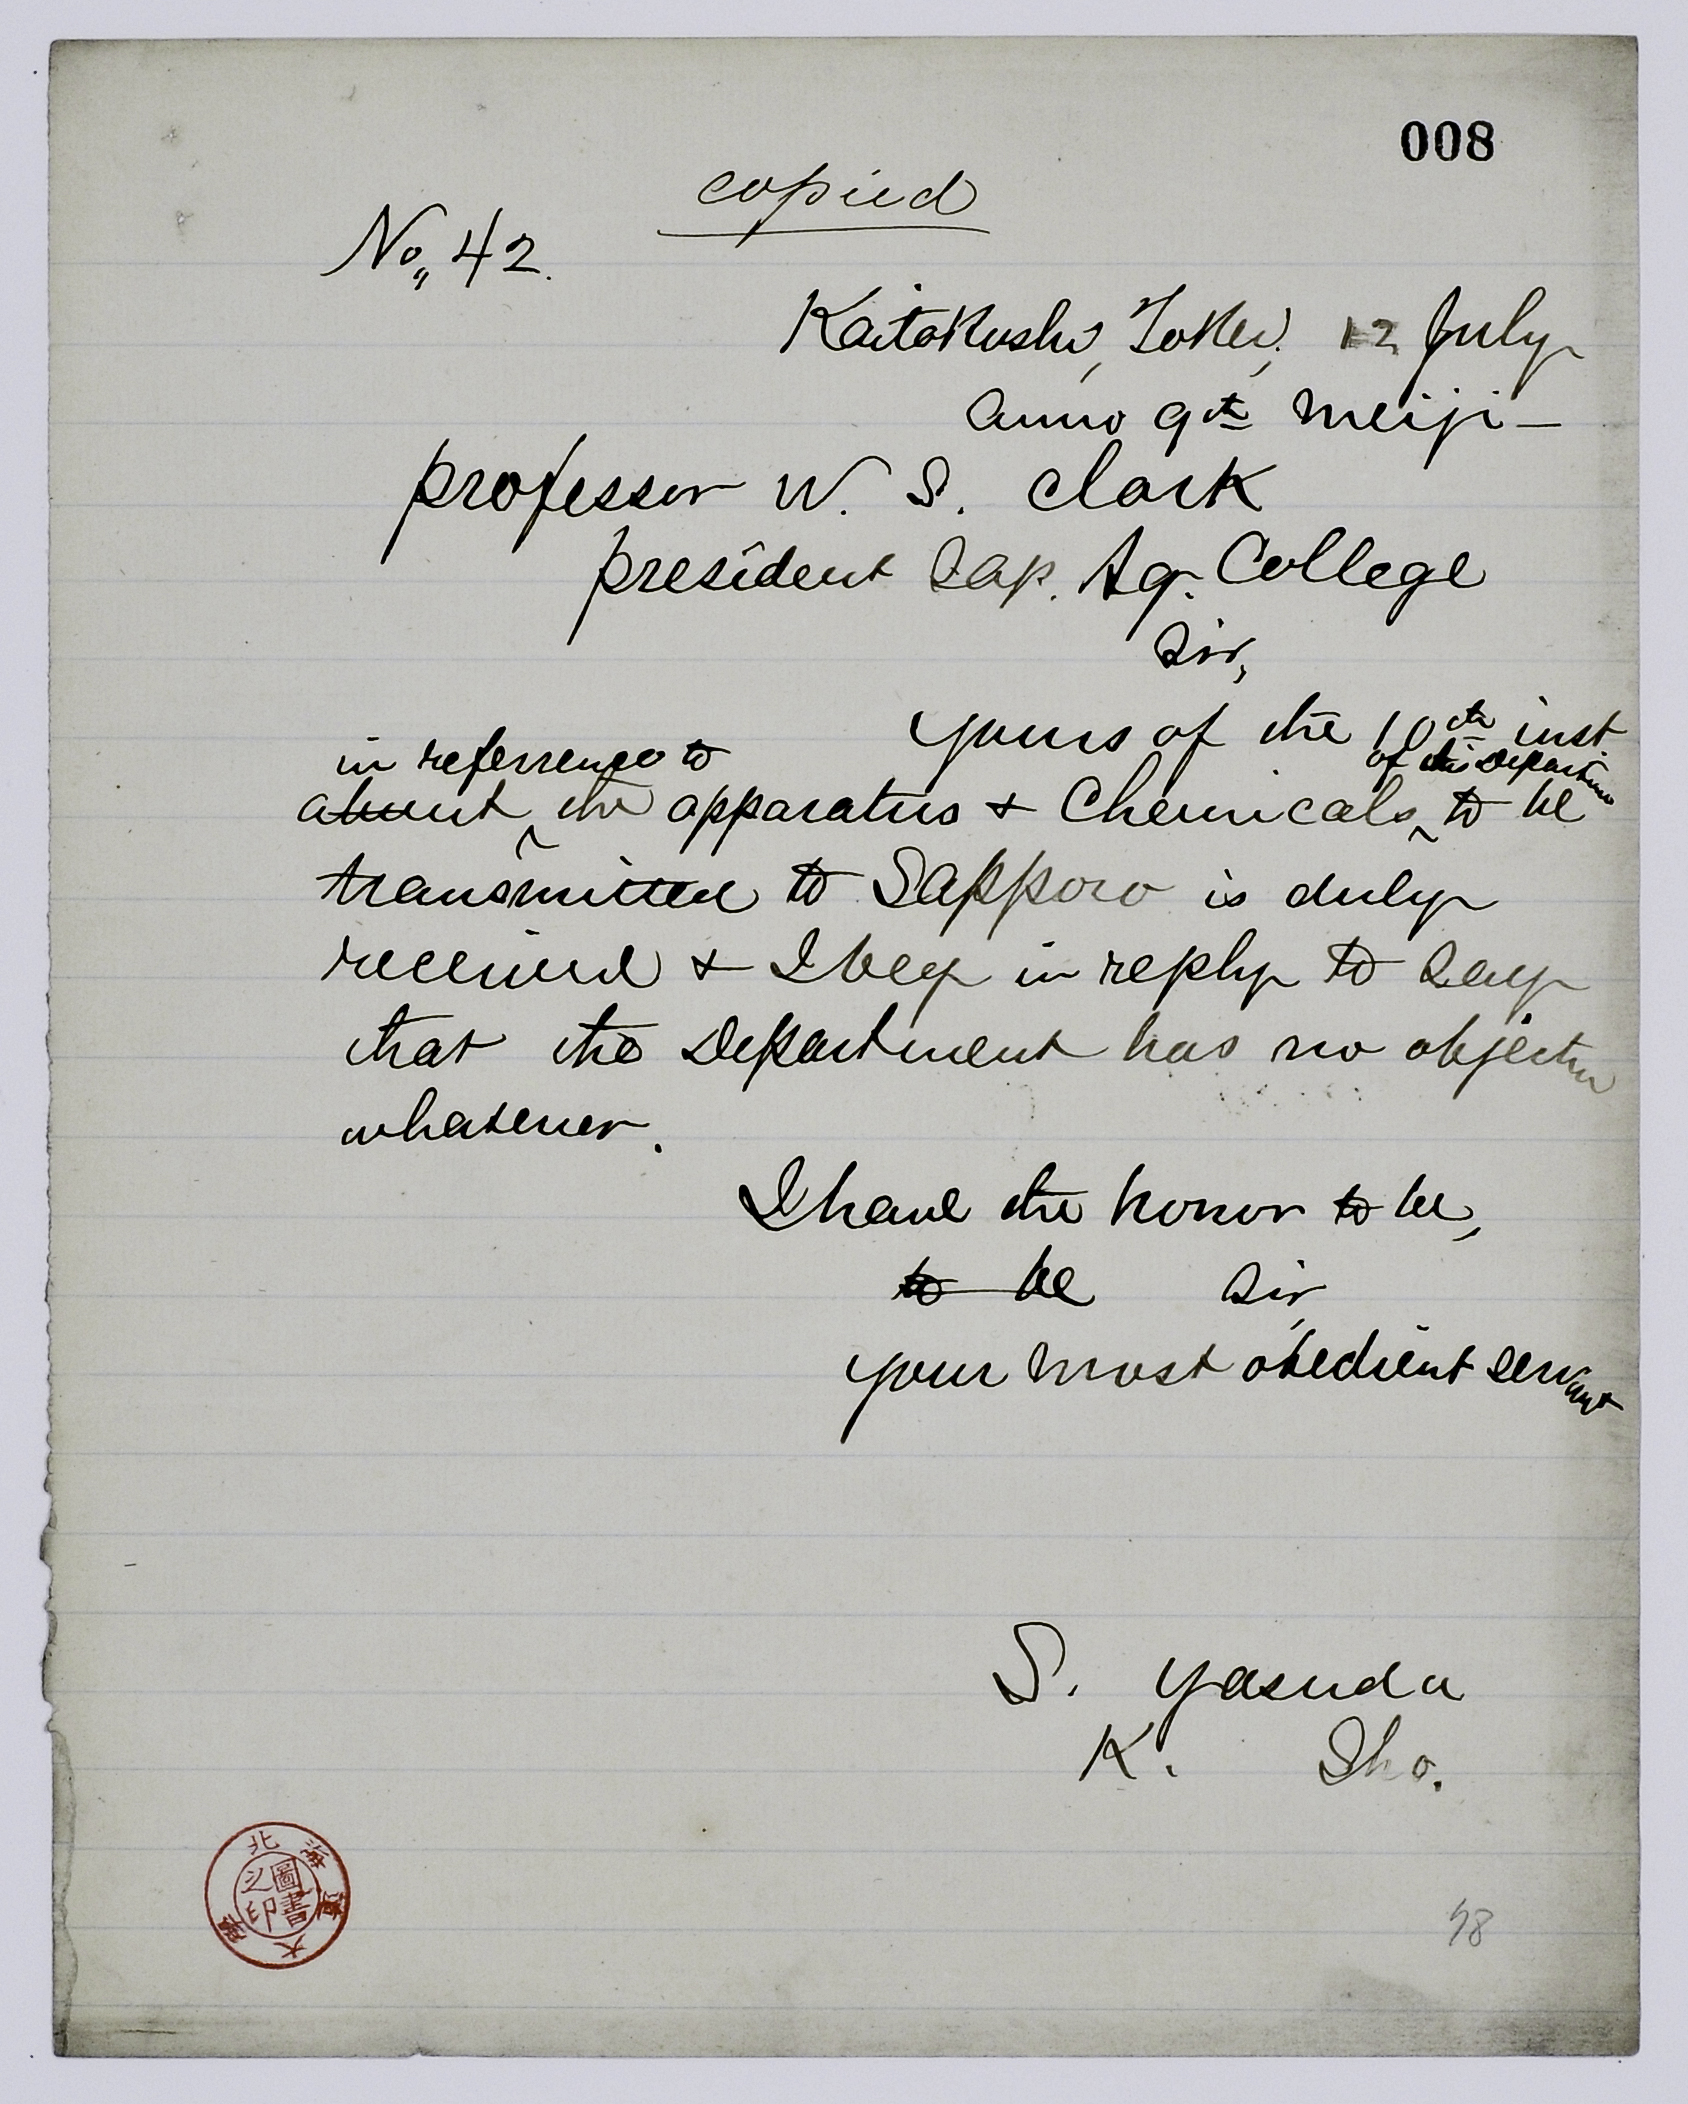 008
copied
No„ 42.
Kaitakushi, Tokei, 12 July
anno 9th Meiji –
professor W. S. Clark
president Sap. Ag. College
Sir,
Yours of the 10th inst
in referrence to of this Department
about the apparatus & Chemicals to be
transmitted to Sapporo is duly
received & I beg in reply to say
that the Department has no objection
whatever.
I have the honor to be,
to be Sir,
your most obedient servant
S. Yasuda
K. Sho.
98
北海道大學
圖書之印